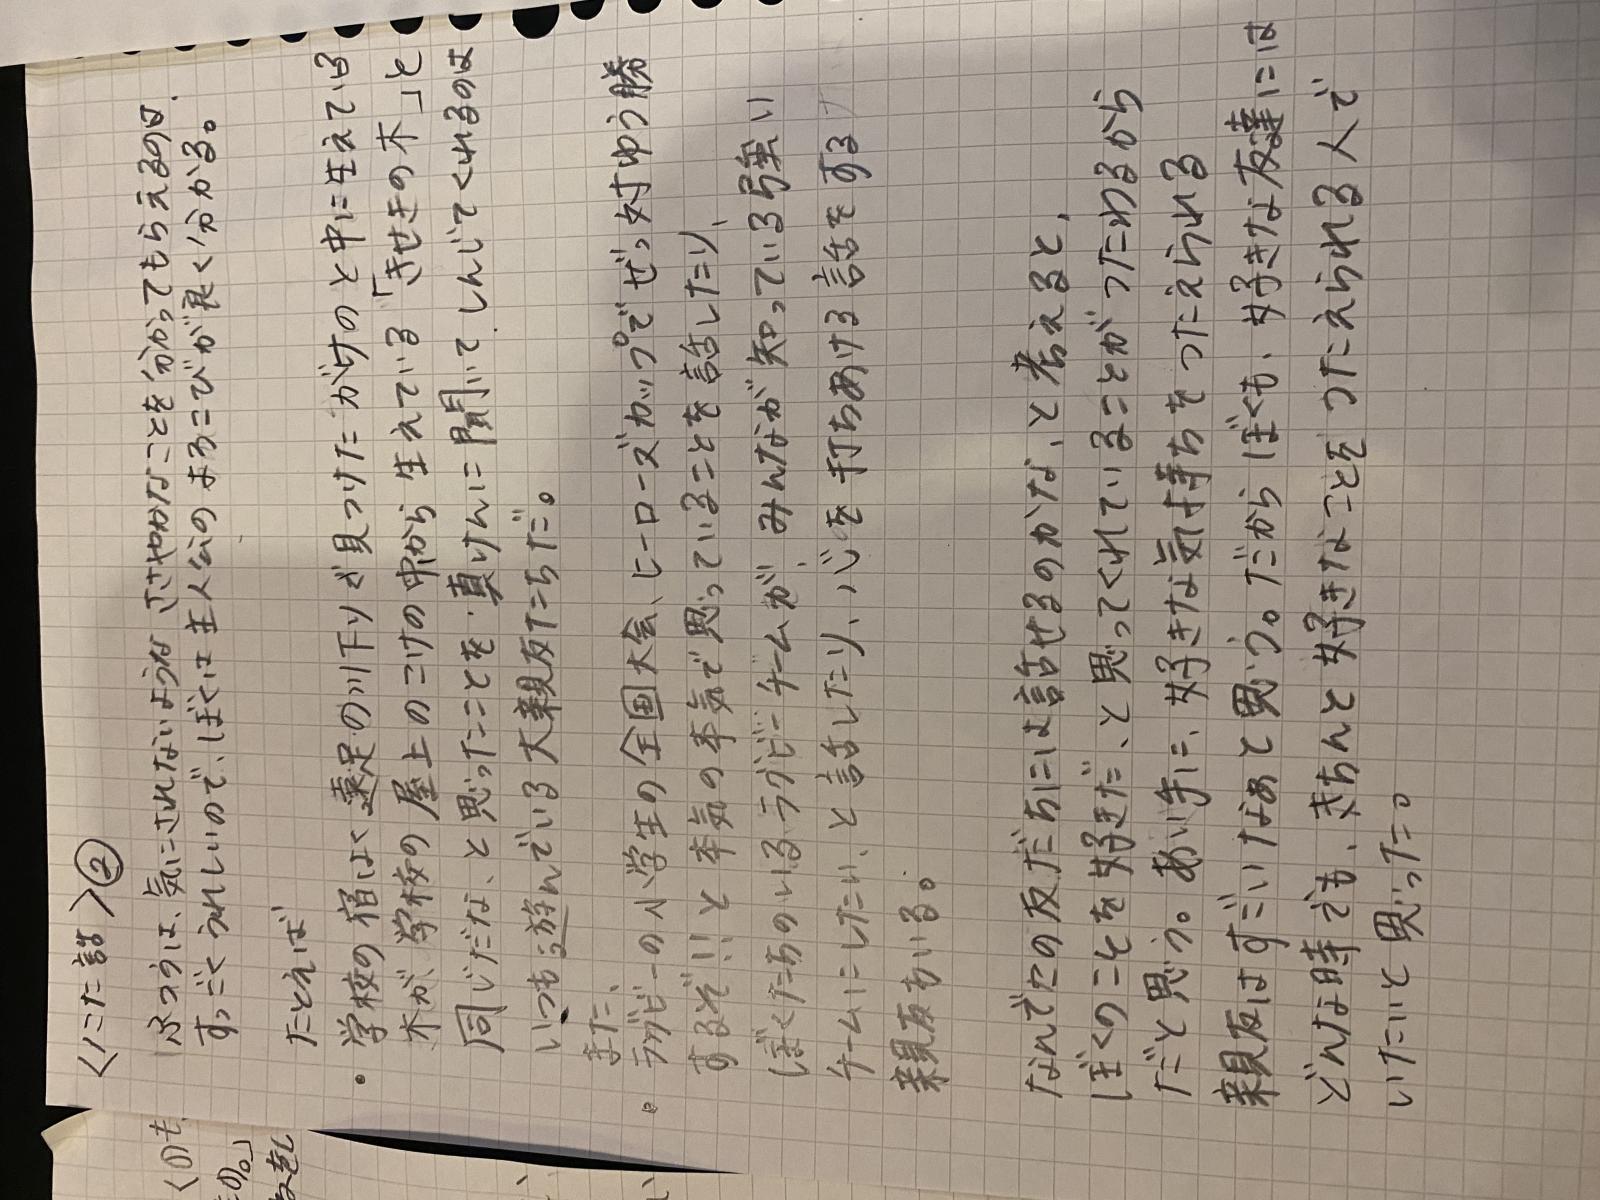 〈にた話〉②
ふつうは、気にされないような ささやかなことを分かってもらえるのは、
すっごくうれしいので、ぼくは主人公のよろこびが良く分かる。
たとえば
・学校の宿はく遠足の川下りが見つけたがけのと中に生えている
木が、学校の屋上のこけの中から生えている「きせきの木」と
同じだな、と思ったことを、真けんに聞いて しんじてくれるのは
いつも遊んでいる大親友たちだ。
また、
。ラグビーの小学生の全国大会、ヒーローズカップでぜっ対ゆう勝
するぞ!!と本気の本気で思っていることを話したり、
ぼくたちのいるラグビーチームが、みんなが知っている強い
チームにしたい、と話したり、心を打ちあける話をする
親友もいる。
なんでこの友だちには話せるのかな、と考えると、
ぼくのことを好きだ、と思ってくれていることがつたわるから
だと思う。あい手に、好きな気持ちをつたえられる
親友はすごいなあと思う。だからぼくも、好きな友達には
どんな時でも、きちんと好きなことをつたえられる人で
いたいと思った。